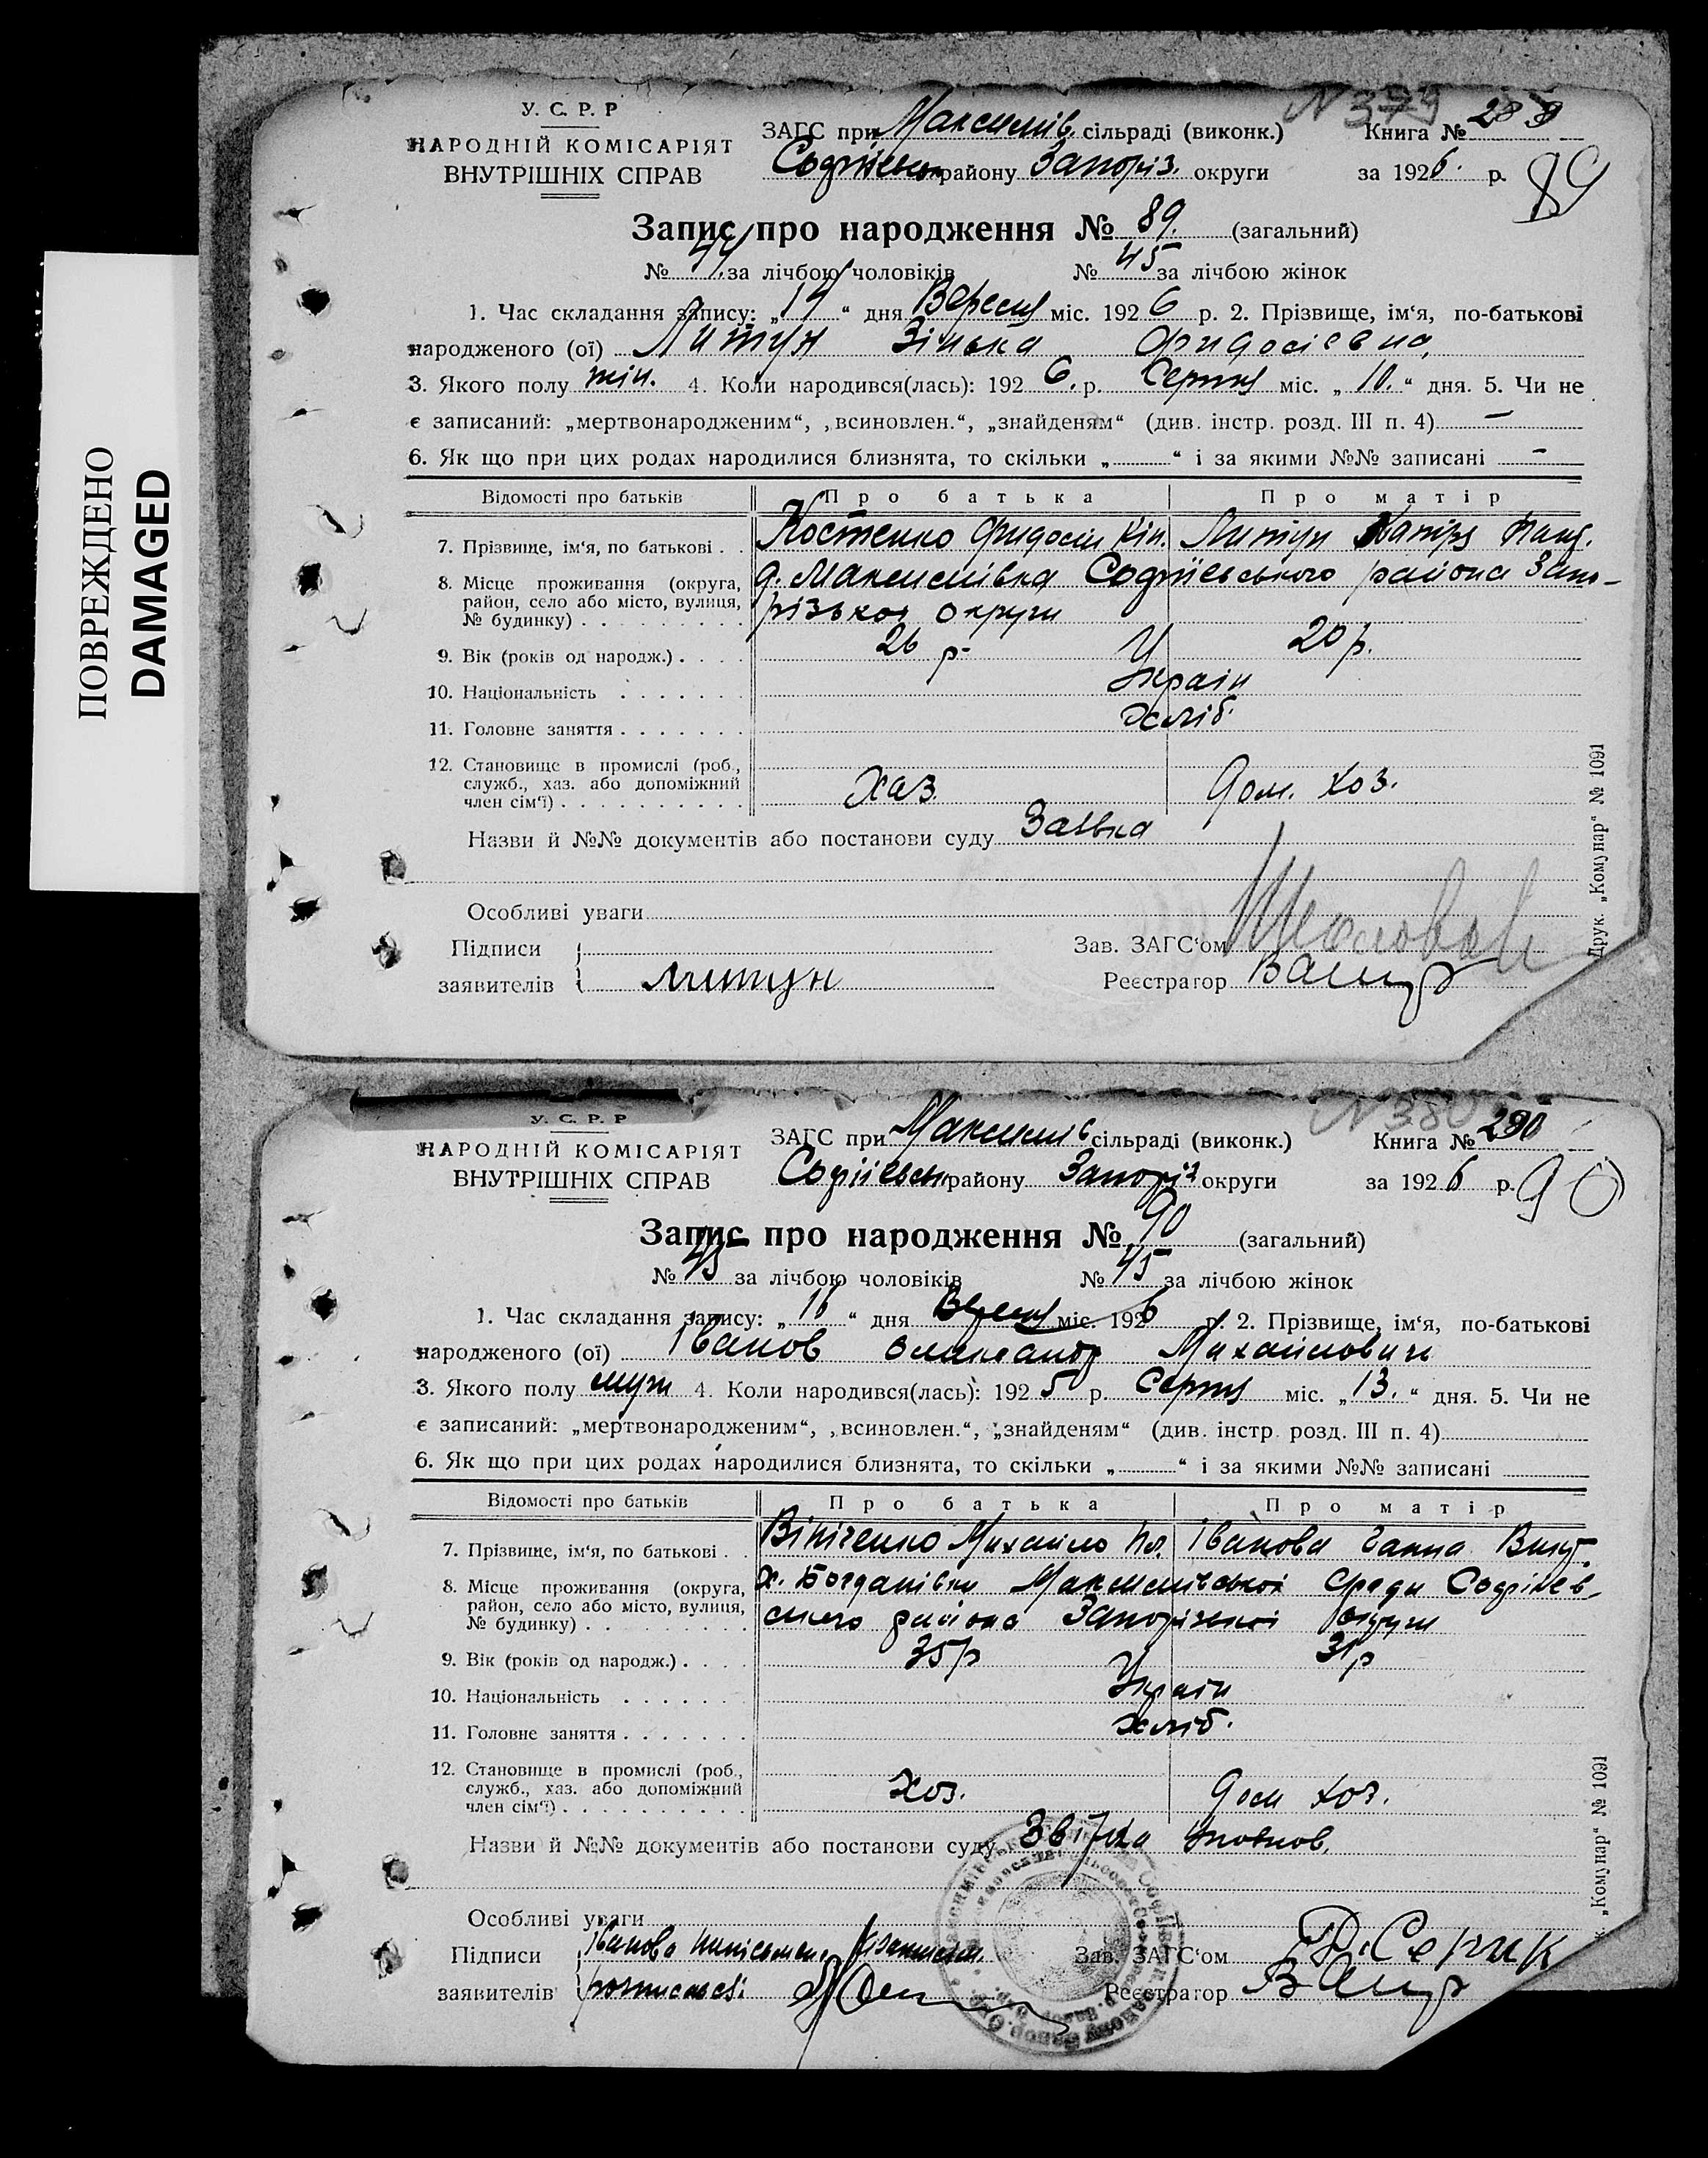 ПОВРЕЖДЕНО
DAMAGED
У. С. Р. Р
НАРОДНІЙ КОМІСАРІЯТ
ВНУТРІШНІХ СПРАВ
ЗАГС при Максимів. сільраді (виконк.)
району Запоріз. округи
N 379
Книга №
за 1926. р.
89
Запис про народження № 89. (загальний)
№ 44 за лічбою чоловіків № 45 за лічбою жінок
1. Час складання запису: „14“ дня Вересня міс. 1926 р. 2. Прізвище, ім‘я, по-батькові
народженого (ої) Литун Зінька Фидосієвна
3. Якого полу жін. 4. Коли народився(лась): 1926. р. Серпня міс. „10.“ дня. 5. Чи не
є записаний: „мертвонародженим“, „всиновлен.“, „знайденям“ (див. інстр. розд. III п. 4) —
6. Як що при цих родах народилися близнята, то скільки „ “ і за якими №№ записані —
Відомості про батьків Про батька Про матір
7. Прізвище, ім‘я, по батькові . . Костенко Фидосій Кін. Литун
8. Місце проживання (округа, район, село або місто, вулиця, № будинку) . . . д. Максимівка Софіївського района Запо-
різької округи
9. Вік (років од народж.) . . . . 26 р. 20 р.
10. Національність . . . . . . . Україн
11. Головне заняття . . . . . . . хліб.
12. Становище в промислі (роб., служб., хаз. або допоміжний член сім‘ї) . . . Хаз. Дом. хоз.
Назви й №№ документів або постанови суду Заявка
Особливі уваги
Підписи
заявителів Литун
Зав. ЗАГС‘ом
Реєстратор
Друк. „Комунар“ № 1091
У. С. Р. Р
НАРОДНІЙ КОМІСАРІЯТ
ВНУТРІШНІХ СПРАВ
ЗАГС при Максимів сільраді (виконк.)
Софіївськ району Запоріз округи
N 380
Книга № 290
за 1926 р.
90
Запис про народження № 90 (загальний)
№ 45 за лічбою чоловіків № 45 за лічбою жінок
1. Час складання запису: „16“ дня Вересня міс. 1926 р. 2. Прізвище, ім‘я, по-батькові
народженого (ої) Іванов Олександр Михайлович
3. Якого полу муж 4. Коли народився(лась): 1925 р. Серпня міс. „13.“ дня. 5. Чи не
є записаний: „мертвонародженим“, „всиновлен.“, „знайденям“ (див. інстр. розд. III п. 4)
6. Як що при цих родах народилися близнята, то скільки „ “ і за якими №№ записані
Відомості про батьків Про батька Про матір
7. Прізвище, ім‘я, по батькові . . Вініченко Михайло Іванова Ганна
8. Місце проживання (округа, район, село або місто, вулиця, № будинку) . . . х. Богданівки Максимівської с/ради Софіїев-
ського района Запорізької округи
9. Вік (років од народж.) . . . . 35 р 31 р
10. Національність . . . . . . . Україн
11. Головне заняття . . . . . . . хліб.
12. Становище в промислі (роб., служб., хаз. або допоміжний член сім‘ї) . . . Хоз. Дом хоз.
Назви й №№ документів або постанови суду
Особливі уваги
Підписи Іванова
заявителів
Зав. ЗАГС‘ом
Реєстратор
„Комунар“ № 1091